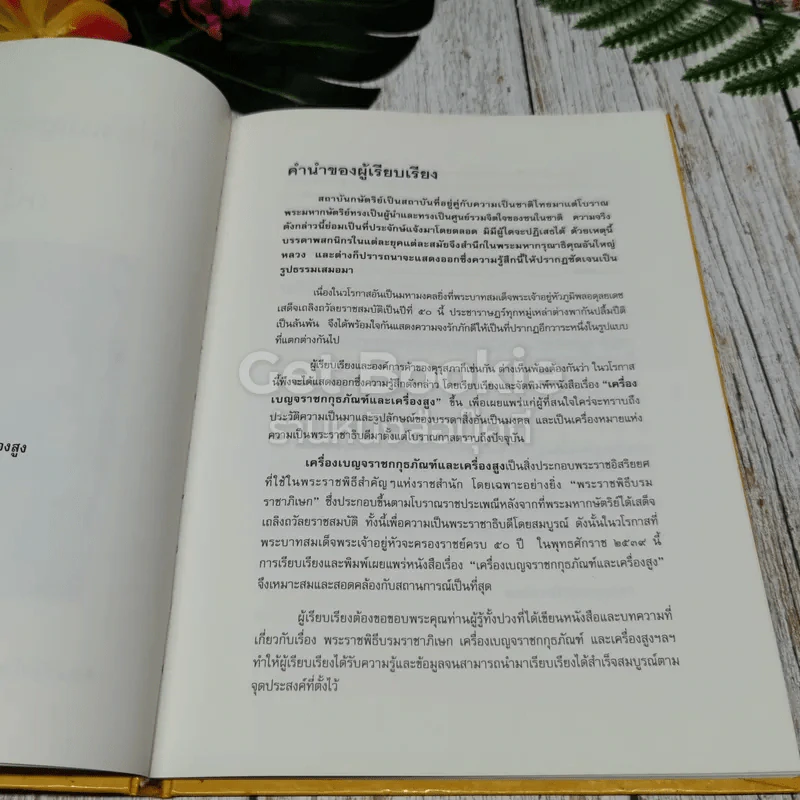 คำนำของผู้เรียบเรียง
สถาบันกษัตริย์เป็นสถาบันที่อยู่คู่กับความเป็นชาติไทยมาแต่โบราณ
พระมหากษัตริย์ทรงเป็นผู้นำและทรงเป็นศูนย์รวมจิตใจของชนในชาติ ความจริง
ดังกล่าวนี้ย่อมเป็นที่ประจักษ์แจ้งมาโดยตลอด มิมีผู้ใดจะปฏิเสธได้ ด้วยเหตุนี้
บรรดาพสกนิกรในแต่ละยุคแต่ละสมัยจึงสำนึกในพระมหากรุณาธิคุณอันใหญ่
หลวง และต่างก็ปรารถนาจะแสดงออกซึ่งความรู้สึกนี้ให้ปรากฏชัดเจนเป็น
รูปธรรมเสมอมา
เนื่องในวโรกาสอันเป็นมหามงคลยิ่งที่พระบาทสมเด็จพระเจ้าอยู่หัวภูมิพลอดุลยเดช
เสด็จเถลิงถวัลยราชสมบัติเป็นปีที่ ๕๐ นี้ ประชาราษฎร์ทุกหมู่เหล่าต่างพากันปลื้มปีติ
เป็นล้นพ้น จึงได้พร้อมใจกันแสดงความจงรักภักดีให้เป็นที่ปรากฏอีกวาระหนึ่งในรูปแบบ
ที่แตกต่างกันไป
ผู้เรียบเรียงและองค์การค้าของคุรุสภาก็เช่นกัน ต่างเห็นพ้องต้องกันว่า ในวโรกาส
นี้พึงจะได้แสดงออกซึ่งความรู้สึกดังกล่าว โดยเรียบเรียงและจัดพิมพ์หนังสือเรื่อง “เครื่อง
เบญจราชกกุธภัณฑ์และเครื่องสูง” ขึ้น เพื่อเผยแพร่แก่ผู้ที่สนใจใคร่จะทราบถึง
ประวัติความเป็นมาและรูปลักษณ์ของบรรดาสิ่งอันเป็นมงคล และเป็นเครื่องหมายแห่ง
ความเป็นพระราชาธิบดีมาตั้งแต่โบราณกาลตราบถึงปัจจุบัน
เครื่องเบญจราชกกุธภัณฑ์และเครื่องสูงเป็นสิ่งประกอบพระราชอิสริยยศ
ที่ใช้ในพระราชพิธีสำคัญๆแห่งราชสำนัก โดยเฉพาะอย่างยิ่ง “พระราชพิธีบรม
ราชาภิเษก” ซึ่งประกอบขึ้นตามโบราณราชประเพณีหลังจากที่พระมหากษัตริย์ได้เสด็จ
เถลิงถวัลยราชสมบัติ ทั้งนี้เพื่อความเป็นพระราชาธิบดีโดยสมบูรณ์ ดังนั้นในวโรกาสที่
พระบาทสมเด็จพระเจ้าอยู่หัวจะครองราชย์ครบ ๕๐ ปี ในพุทธศักราช ๒๕๓๙ นี้
การเรียบเรียงและพิมพ์เผยแพร่หนังสือเรื่อง “เครื่องเบญจราชกกุธภัณฑ์และเครื่องสูง”
จึงเหมาะสมและสอดคล้องกับสถานการณ์เป็นที่สุด
ผู้เรียบเรียงต้องขอขอบพระคุณท่านผู้รู้ทั้งปวงที่ได้เขียนหนังสือและบทความที่
เกี่ยวกับเรื่อง พระราชพิธีบรมราชาภิเษก เครื่องเบญจราชกกุธภัณฑ์ และเครื่องสูงฯลฯ
ทำให้ผู้เรียบเรียงได้รับความรู้และข้อมูลจนสามารถนำมาเรียบเรียงได้สำเร็จสมบูรณ์ตาม
จุดประสงค์ที่ตั้งไว้
องสูง
Get Booki
ร้านหนังสือบุ๊คกี้